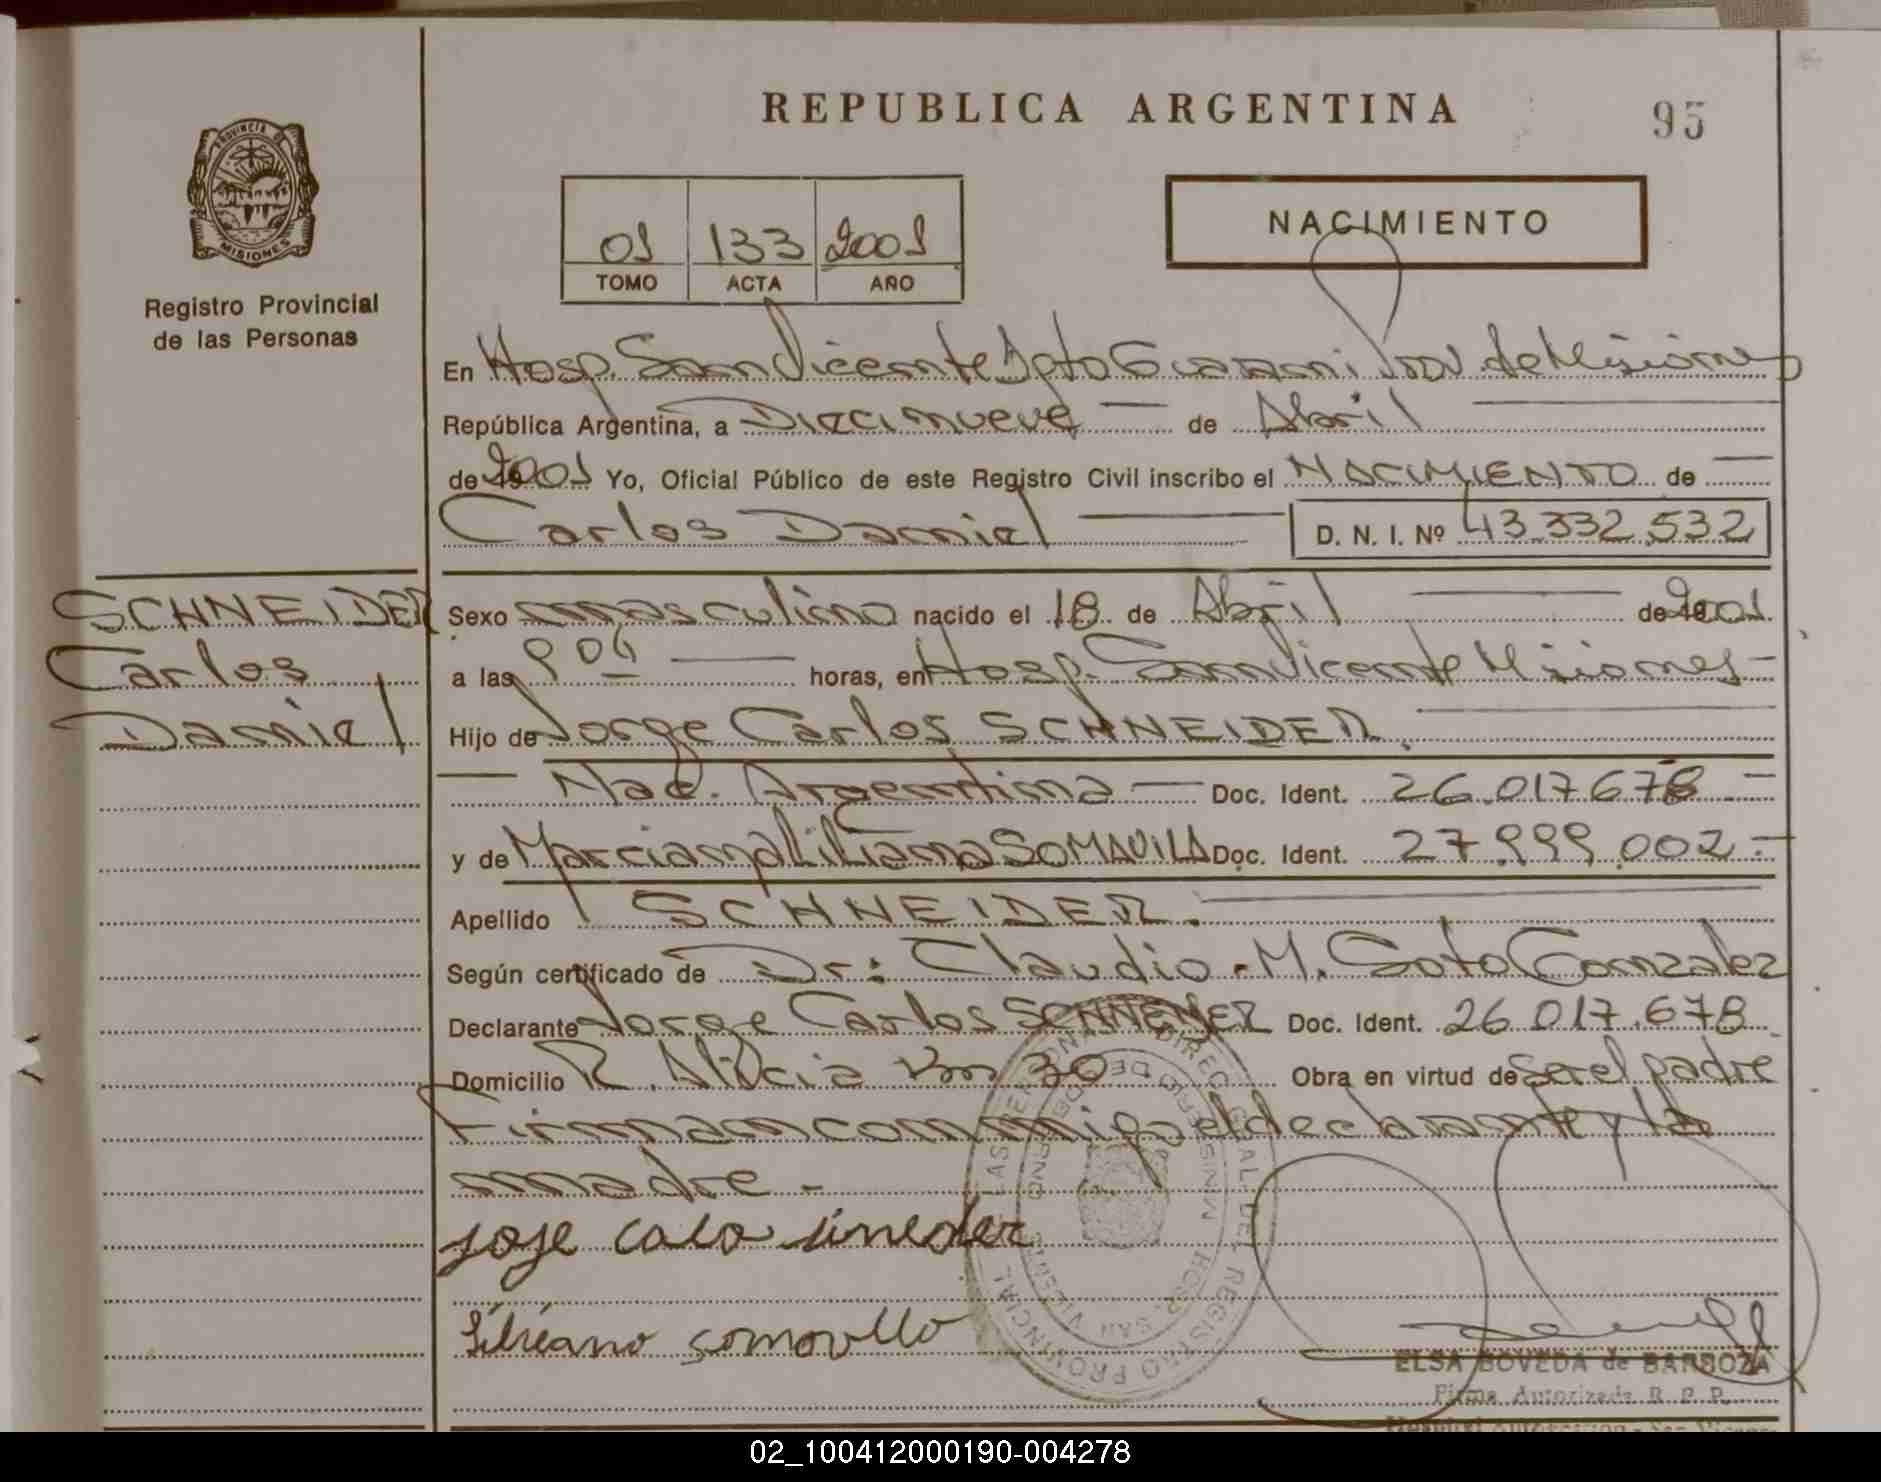 REPUBLICA ARGENTINA
95
PROVINCIA DE
MISIONES
Registro Provincial
de las Personas
01 133 2001
TOMO ACTA AÑO
NACIMIENTO
En Hosp. San Vicente Dpto Guarani Prov. de Misiones
República Argentina, a Diecinueve — de Abril —
de 2001 Yo, Oficial Público de este Registro Civil inscribo el NACIMIENTO de —
Carlos Daniel — D. N. I. Nº 43.332.532
SCHNEIDER
Carlos
Daniel
Sexo masculino nacido el 18 de Abril — de 2001.
a las 9 04 — horas, en Hosp. San Vicente Misiones —
Hijo de Jorge Carlos SCHNEIDER. —
— Nac. Argentina — Doc. Ident. 26.017.678 —
y de Marciana Liliana SOMAVILLA Doc. Ident. 27.999.002.—
Apellido SCHNEIDER. —
Según certificado de Dr: Claudio. M. Soto Gonzalez
Declarante Jorge Carlos SCHNEIDER Doc. Ident. 26.017.678
Domicilio R. Alicia Km 30 Obra en virtud de ser el padre
Firman conmigo el declarante y la
madre.-
Liliana somovilla
ELSA BOVEDA de BARBOZA
Firma Autorizada R. P. P.
DIREC. GRAL. DEL REGISTRO PROVINCIAL DE LAS PERSONAS
MINISTERIO DE GOBIERNO
HOSP. SAN VICENTE
02_100412000190-004278